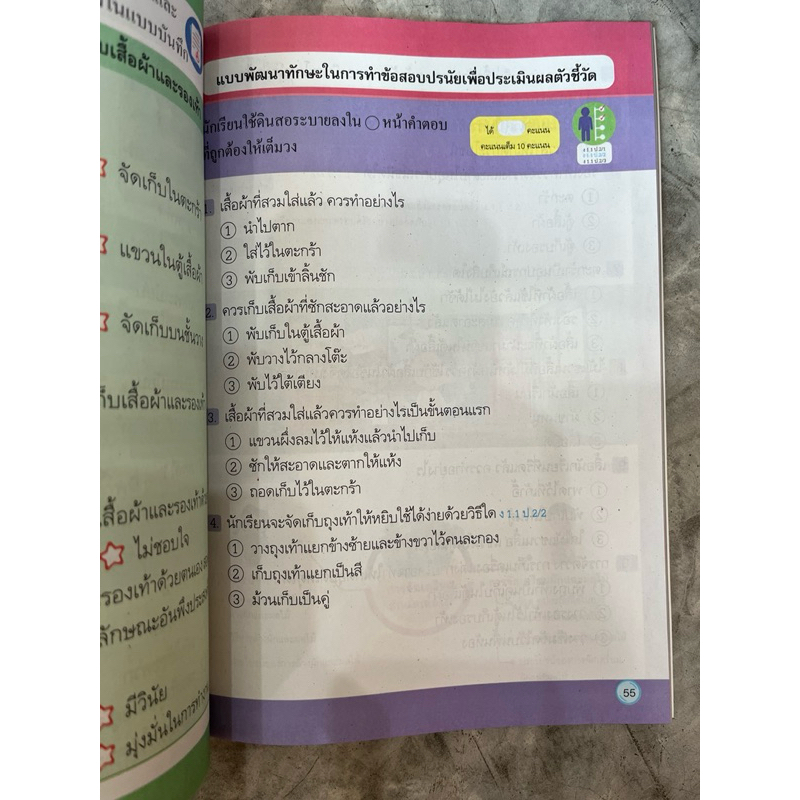 และ
ในแบบบันทึก
เสื้อผ้าและรองเท้า
จัดเก็บในตะกร้า
แขวนในตู้เสื้อผ้า
จัดเก็บบนชั้นวาง
เก็บเสื้อผ้าและรองเท้า
เสื้อผ้าและรองเท้า
ไม่ชอบใจ
รองเท้าด้วยตนเอง
ลักษณะอันพึงประสงค์
มีวินัย
มุ่งมั่นในการทำงาน
แบบพัฒนาทักษะในการทำข้อสอบปรนัยเพื่อประเมินผลตัวชี้วัด
นักเรียนใช้ดินสอระบายลงใน ○ หน้าคำตอบ
ที่ถูกต้องให้เต็มวง
ได้ คะแนน
คะแนนเต็ม 10 คะแนน
ง 1.1 ป.2/1
ง 1.1 ป.2/2
ง 1.1 ป.2/3
1. เสื้อผ้าที่สวมใส่แล้ว ควรทำอย่างไร
① นำไปตาก
② ใส่ไว้ในตะกร้า
③ พับเก็บเข้าลิ้นชัก
2. ควรเก็บเสื้อผ้าที่ซักสะอาดแล้วอย่างไร
① พับเก็บในตู้เสื้อผ้า
② พับวางไว้กลางโต๊ะ
③ พับไว้ใต้เตียง
3. เสื้อผ้าที่สวมใส่แล้วควรทำอย่างไรเป็นขั้นตอนแรก
① แขวนผึ่งลมไว้ให้แห้งแล้วนำไปเก็บ
② ซักให้สะอาดและตากให้แห้ง
③ ถอดเก็บไว้ในตะกร้า
4. นักเรียนจะจัดเก็บถุงเท้าให้หยิบใช้ได้ง่ายด้วยวิธีใด ง 1.1 ป.2/2
① วางถุงเท้าแยกข้างซ้ายและข้างขวาไว้คนละกอง
② เก็บถุงเท้าแยกเป็นสี
③ ม้วนเก็บเป็นคู่
55